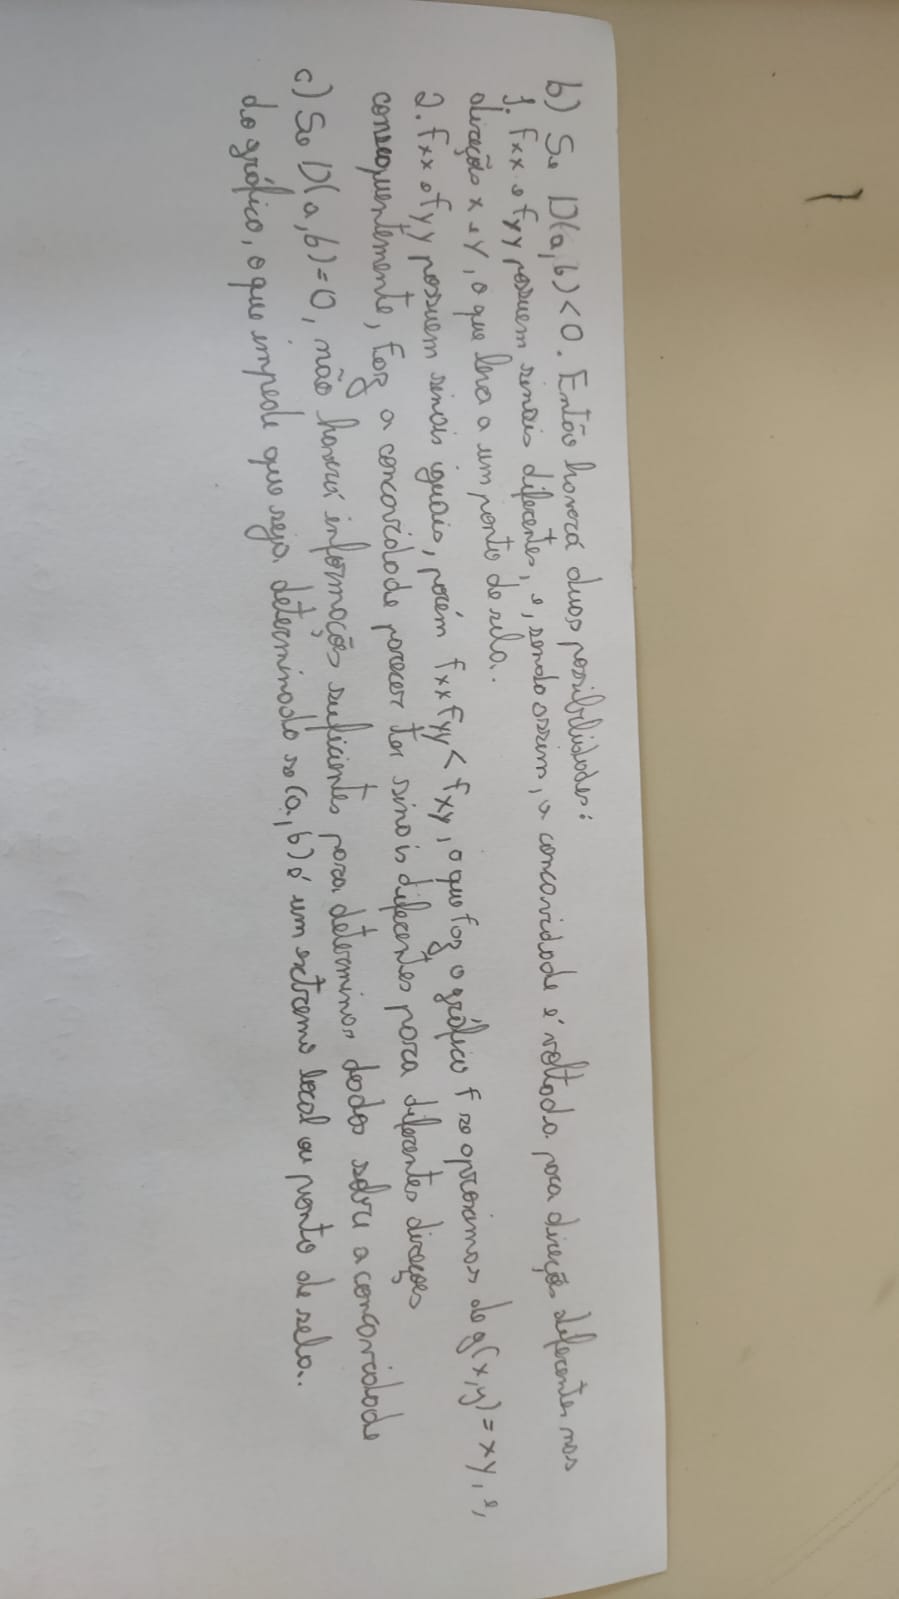 b) Se D(a,b) < 0. Então haverá duas possibilidades:
1. fxx e fyy possuem sinais diferentes, e, sendo assim, a concavidade é voltada para direções diferentes nas
direções x e y, o que leva a um ponto de sela.
2. fxx e fyy possuem sinais iguais, porém fxxfyy < fxy, o que faz o gráfico f se aproximar de g(x,y) = xy, e,
consequentemente, faz a concavidade parecer ter sinais diferentes para diferentes direções
c) Se D(a,b) = 0, não haverá informações suficientes para determinar dados sobre a concavidade
do gráfico, o que impede que seja determinado se (a,b) é um extremo local ou ponto de sela.